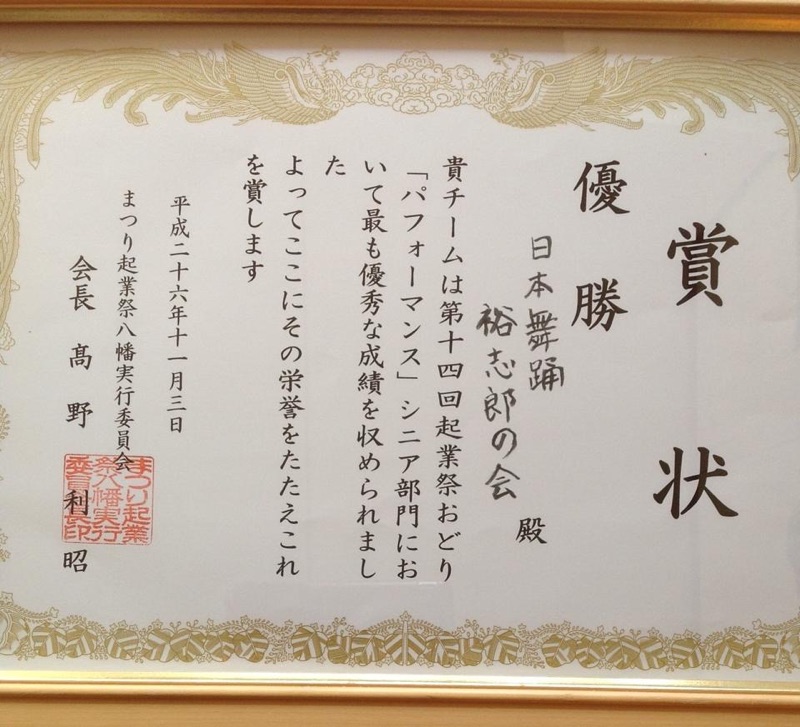 賞状
優勝
日本舞踊
裕志郎の会
殿
貴チームは第十四回起業祭おどり
「パフォーマンス」シニア部門にお
いて最も優秀な成績を収められまし
た
よってここにその栄誉をたたえこれ
を賞します
平成二十六年十一月三日
まつり起業祭八幡実行委員会
会長 髙野 利昭
まつり起業
祭八幡実行
委員長印